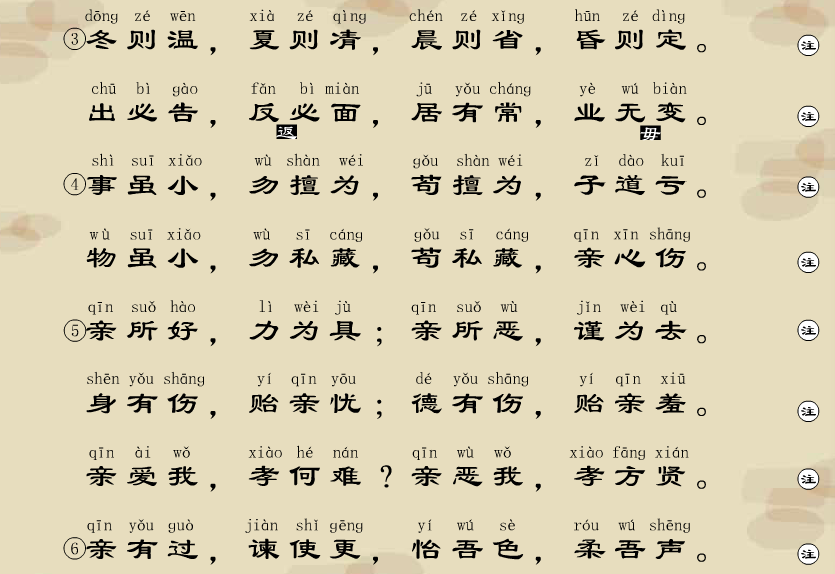 dōng zé wēn xià zé qìng chén zé xǐng hūn zé dìng
③冬则温，夏则凊，晨则省，昏则定。 注
chū bì gào fǎn bì miàn jū yǒu cháng yè wú biàn
出必告，反必面，居有常，业无变。 注
返 毋
shì suī xiǎo wù shàn wéi gǒu shàn wéi zǐ dào kuī
④事虽小，勿擅为，苟擅为，子道亏。 注
wù suī xiǎo wù sī cáng gǒu sī cáng qīn xīn shāng
物虽小，勿私藏，苟私藏，亲心伤。 注
qīn suǒ hào lì wèi jù qīn suǒ wù jǐn wèi qù
⑤亲所好，力为具；亲所恶，谨为去。 注
shēn yǒu shāng yí qīn yōu dé yǒu shāng yí qīn xiū
身有伤，贻亲忧；德有伤，贻亲羞。 注
qīn ài wǒ xiào hé nán qīn wù wǒ xiào fāng xián
亲爱我，孝何难？亲恶我，孝方贤。 注
qīn yǒu guò jiàn shǐ gēng yí wú sè róu wú shēng
⑥亲有过，谏使更，怡吾色，柔吾声。 注